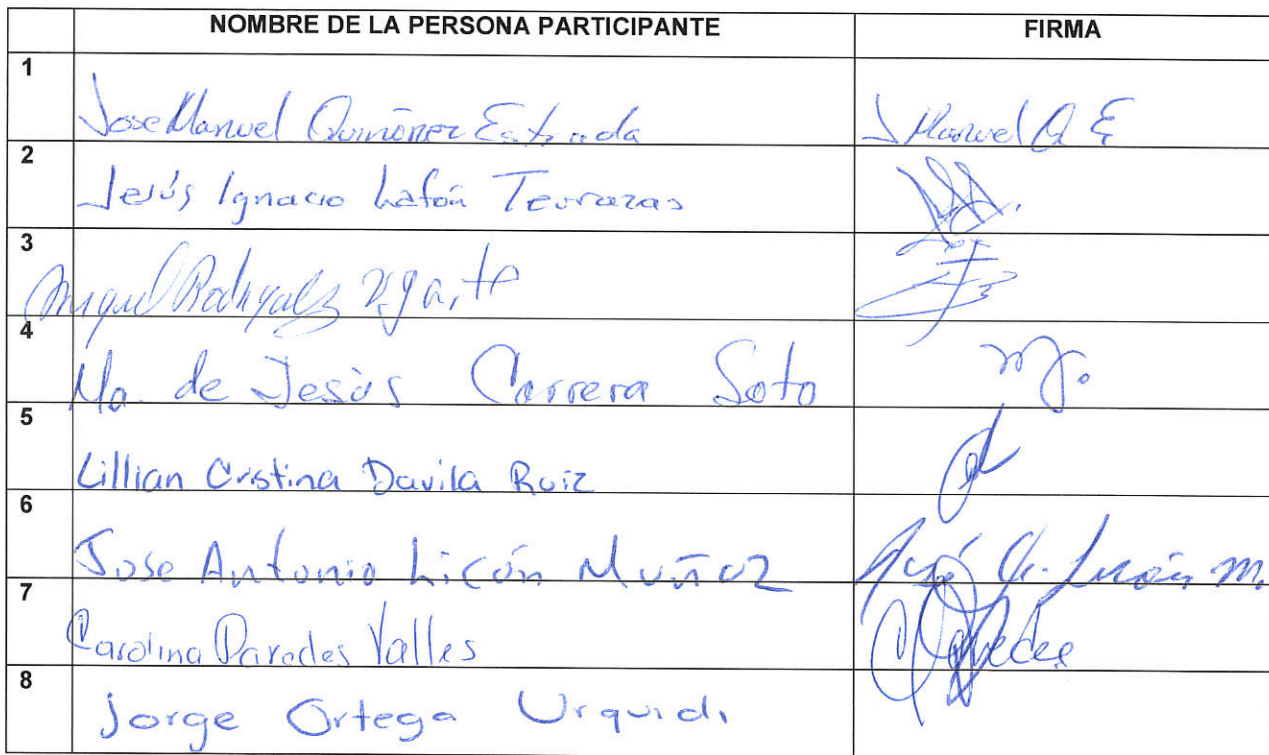 NOMBRE DE LA PERSONA PARTICIPANTE FIRMA
1
Jose Manuel Quiñonez Estrada J Manuel Q E
2
Jesús Ignacio Lafón Terrazas
3
Miguel Rodriguez Ugarte
4
Ma. de Jesús Carrera Soto
5
Lillian Cristina Davila Ruiz
6
Jose Antonio Licón Muñoz José A. Licón M.
7
Carolina Paredes Valles CParedes
8
Jorge Ortega Urquidi